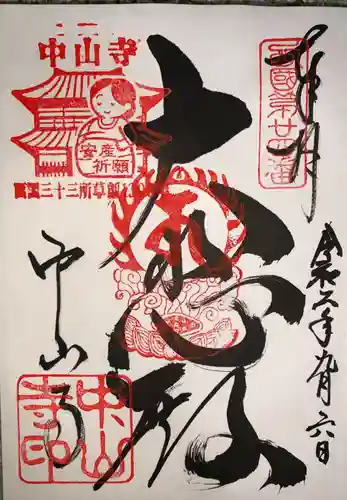 奉拝
西國第廿四番
令和六年九月六日
大悲殿
中山寺
安産
祈願
三十三所草創
中山寺
中山寺印